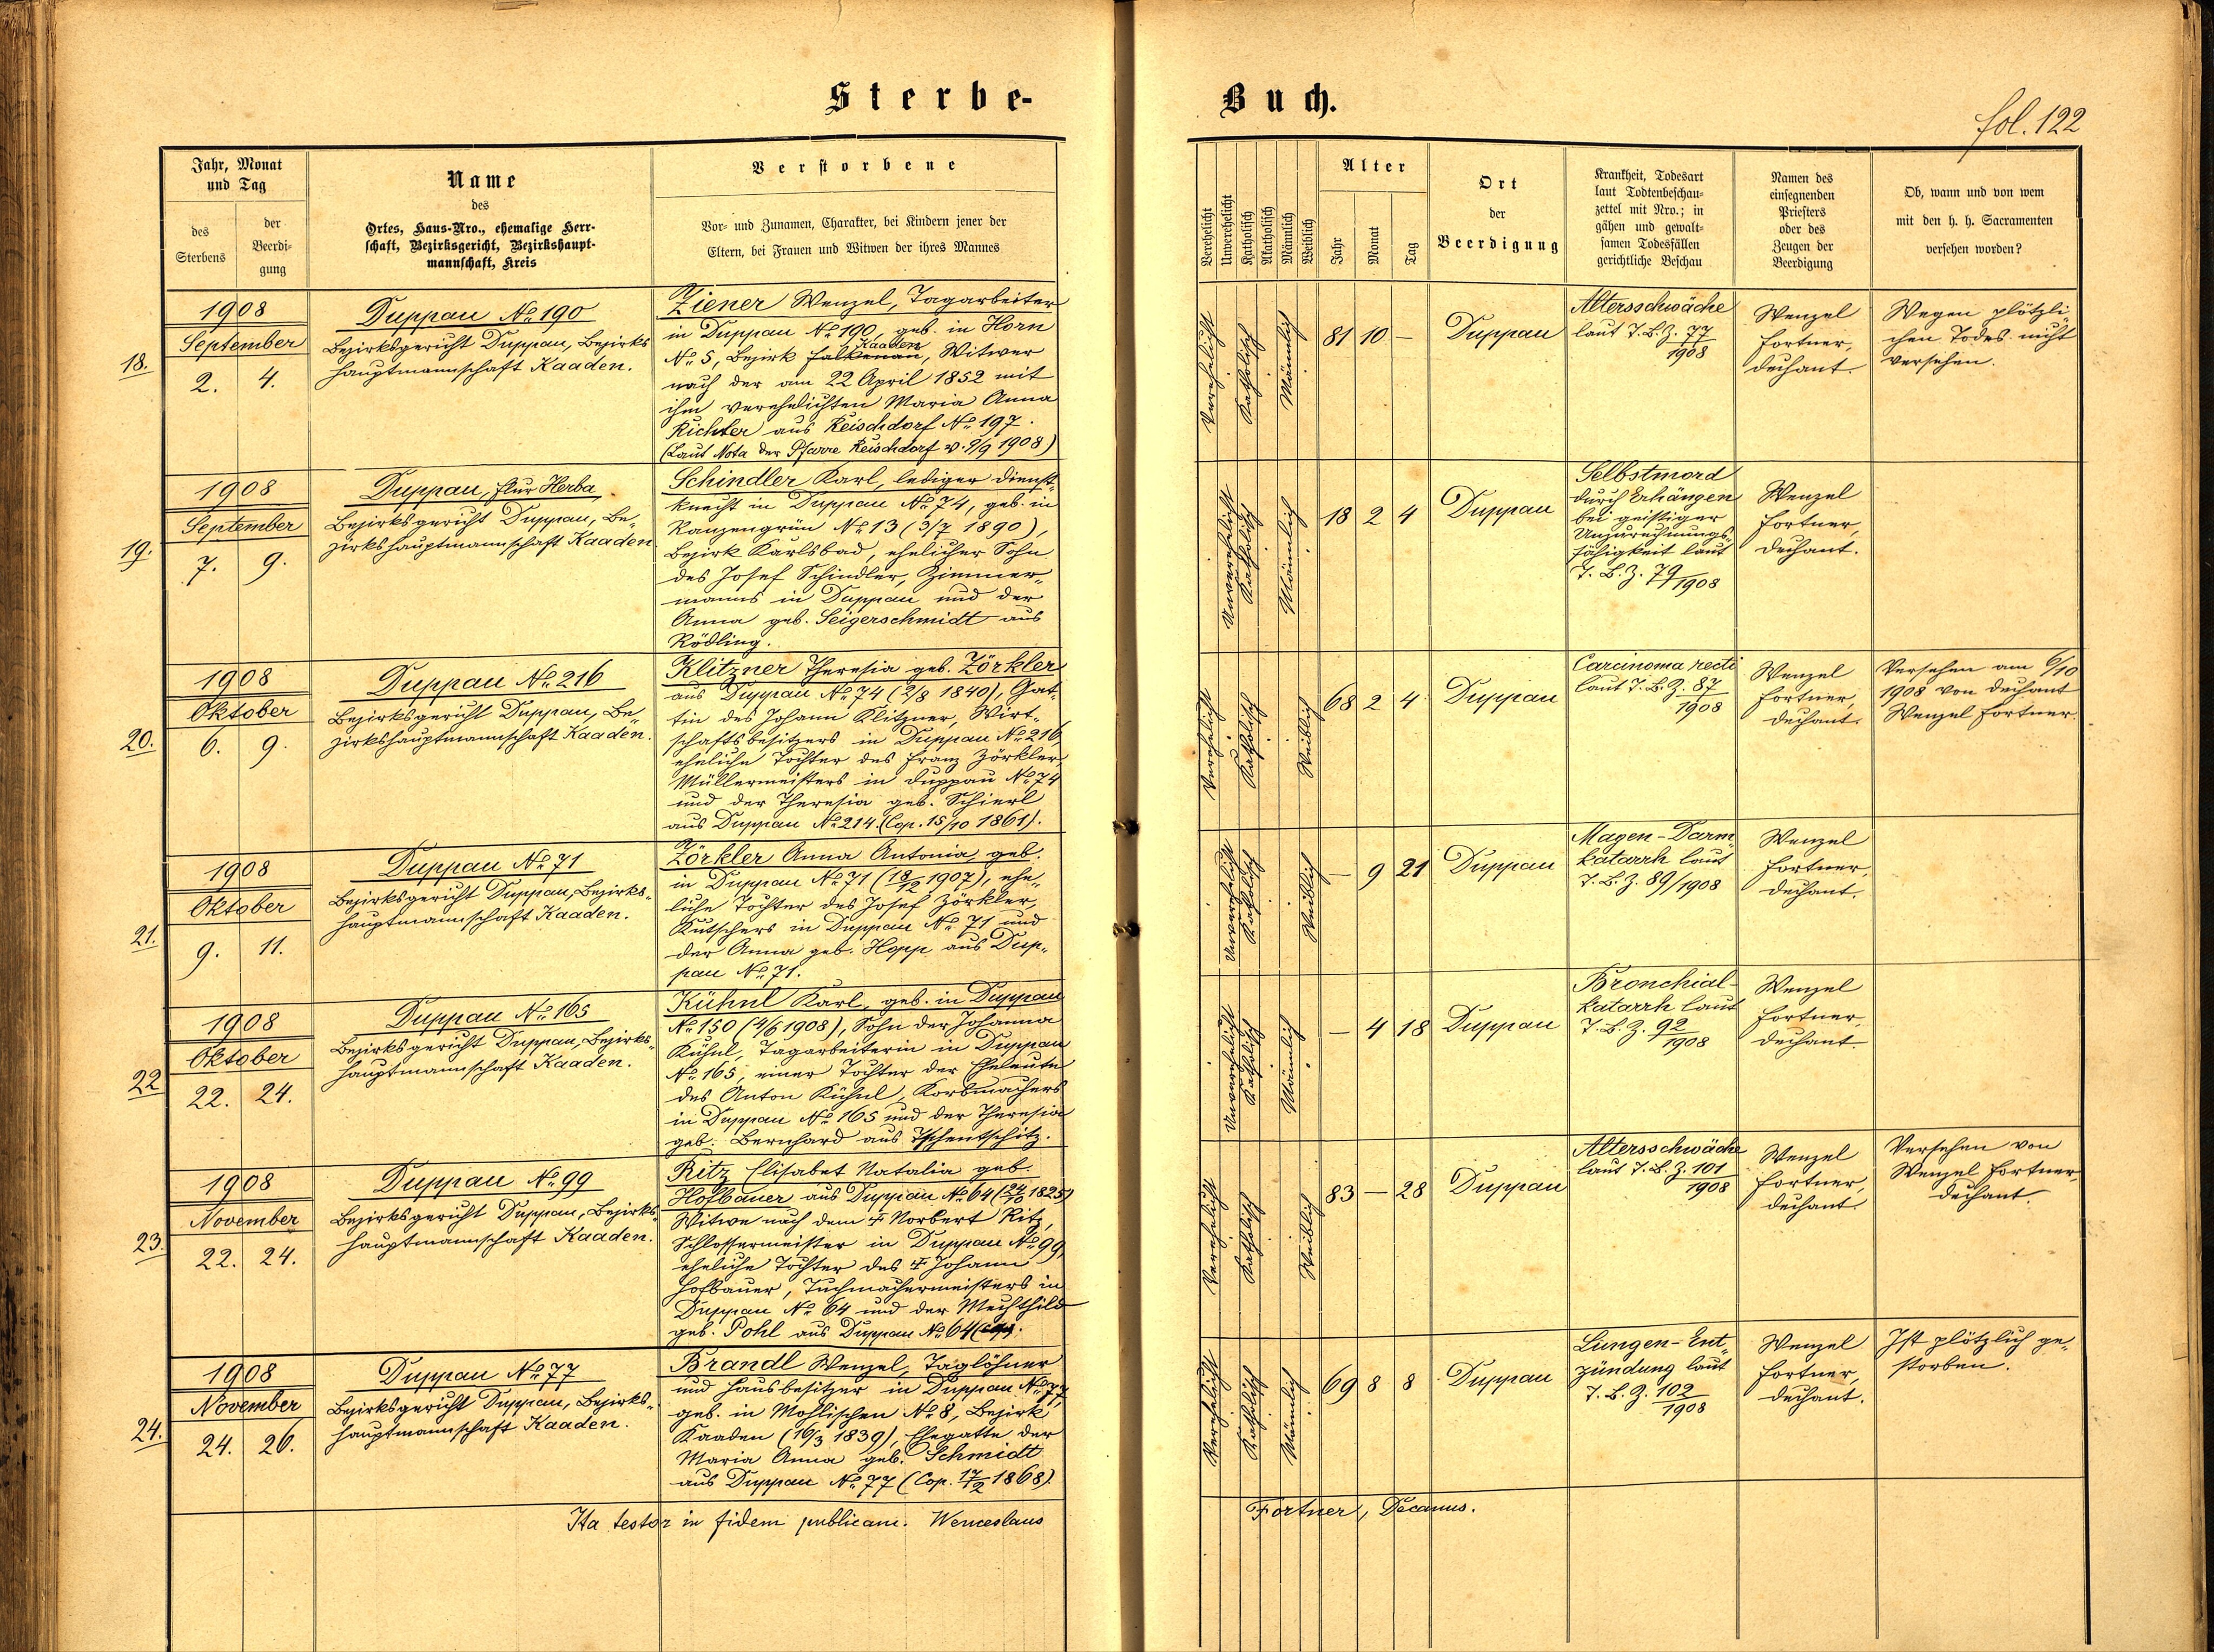 Sterbe-
Buch.
fol. 122
Jahr, Monat
und Tag
des
Sterbens
der
Beerdi-
gung
Name
des
Ortes, Haus-Nro., ehemalige Herr-
schaft, Bezirksgericht, Bezirkshaupt-
mannschaft, Kreis
Verstorbene
Vor- und Zunamen, Charakter, bei Kindern jener der
Eltern, bei Frauen und Witwen der ihres Mannes
Verehelicht
Unverehelicht
Katholisch
Akatholisch
Männlich
Weiblich
Alter
Jahr
Monat
Tag
Ort
der
Beerdigung
Krankheit, Todesart
laut Todtenbeschau-
zettel mit Nro.; in
gähen und gewalt-
samen Todesfällen
gerichtliche Beschau
Namen des
einsegnenden
Priesters
oder des
Zeugen der
Beerdigung
Ob, wann und von wem
mit den h. h. Sacramenten
versehen worden?
18.
1908
September
2. 4.
Duppau No 190
Bezirksgericht Duppau, Bezirks
hauptmannschaft Kaaden.
Ziener Wenzel, Tagarbeiter
in Duppau No 190, geb. in Horn
Kaaden
No 5, Bezirk Falkenau, Witwer
nach der am 22 April 1852 mit
ihm verehelichten Maria Anna
Richter aus Reischdorf No 197.
(Laut Nota der Pfarre Reischdorf v. 9/9 1908)
Verehelicht
Katholisch
Männlich
81 10 –
Duppau
Altersschwäche
laut T.B.Z. 77/1908
Wenzel
Fortner,
Dechant.
Wegen plötzli-
chen Todes nicht
versehen.
19.
1908
September
7. 9.
Duppau, Flur Herba
Bezirksgericht Duppau, Be-
zirkshauptmannschaft Kaaden
Schindler Karl, lediger Dienst-
knecht in Duppau No 74, geb. in
Ranzengrün No 13 (3/7 1890),
Bezirk Karlsbad, ehelicher Sohn
des Josef Schindler, Zimmer-
manns in Duppau und der
Anna geb. Seigerschmidt aus
Rödling.
Unverehelicht
Katholisch
Männlich
18 2 4
Duppau
Selbstmord
durch Erhängen
bei geistiger
Unzurechnungs-
fähigkeit laut
T.B.Z. 79/1908
Wenzel
Fortner,
Dechant.
20.
1908
Oktober
6. 9.
Duppau No 216
Bezirksgericht Duppau, Be-
zirkshauptmannschaft Kaaden.
Klitzner Theresia geb. Zörkler
aus Duppau No 74 (2/8 1840), Gat-
tin des Johann Klitzner, Wirt-
schaftsbesitzers in Duppau No 216,
eheliche Tochter des Franz Zörkler,
Müllermeisters in Duppau No 74
und der Theresia geb. Schierl
aus Duppau No 214. (Cop. 15/10 1861).
Verehelicht
Katholisch
Weiblich
68 2 4
Duppau
Carcinoma recti
laut T.B.Z. 87/1908
Wenzel
Fortner,
Dechant.
Versehen am 6/10
1908 von Dechant
Wenzel Fortner.
21.
1908
Oktober
9. 11.
Duppau No 71
Bezirksgericht Duppau, Bezirks-
hauptmannschaft Kaaden.
Zörkler Anna Antonia, geb.
in Duppau No 71 (18/12 1907), ehe-
liche Tochter des Josef Zörkler,
Kutschers in Duppau No 71 und
der Anna geb. Hopp aus Dup-
pau No 71.
Unverehelicht
Katholisch
Weiblich
– 9 21
Duppau
Magen-Darm-
katarrh laut
T.B.Z. 89/1908
Wenzel
Fortner,
Dechant.
22
1908
Oktober
22. 24.
Duppau No 165
Bezirksgericht Duppau, Bezirks-
hauptmannschaft Kaaden.
Kühnl Karl, geb. in Duppau
No 150 (4/6 1908), Sohn der Johanna
Kühnl, Tagarbeiterin in Duppau
No 165, einer Tochter der Eheleute
des Anton Kühnl, Korbmachers
in Duppau No 165 und der Theresia
geb. Bernhard aus Tschentschitz.
Unverehelicht
Katholisch
Männlich
– 4 18
Duppau
Bronchial-
katarrh laut
T.B.Z. 92/1908
Wenzel
Fortner,
Dechant.
23.
1908
November
22. 24.
Duppau No 99
Bezirksgericht Duppau, Bezirks-
hauptmannschaft Kaaden.
Ritz Elisabet Natalia geb.
Hofbauer aus Duppau No 64 (24/10 1825)
Witwe nach dem † Norbert Ritz,
Schlossermeister in Duppau No 99,
eheliche Tochter des † Johann
Hofbauer, Tuchmachermeisters in
Duppau No 64 und der Mechthild
geb. Pohl aus Duppau No 64
Verehelicht
Katholisch
Weiblich
83 – 28
Duppau
Altersschwäche
laut T.B.Z. 101/1908
Wenzel
Fortner,
Dechant.
Versehen von
Wenzel Fortner,
Dechant.
24.
1908
November
24. 26.
Duppau No 77
Bezirksgericht Duppau, Bezirks-
hauptmannschaft Kaaden.
Brandl Wenzel, Taglöhner
und Hausbesitzer in Duppau No 77,
geb. in Mohlischen No 8, Bezirk
Kaaden (16/3 1839), Ehegatte der
Maria Anna geb. Schmidt
aus Duppau No 77 (Cop. 17/2 1868).
Verehelicht
Katholisch
Männlich
69 8 8
Duppau
Lungen-Ent-
zündung laut
T.B.Z. 102/1908
Wenzel
Fortner,
Dechant.
Ist plötzlich ge-
storben.
Ita testor in fidem publicam. Wenceslaus
Fortner, Decanus.